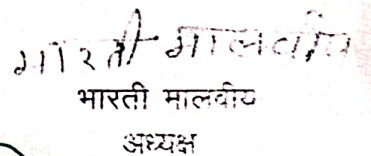 भारती मालवीय
भारती मालवीय
अध्यक्ष